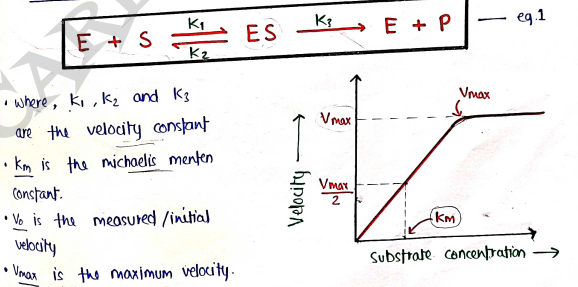 E + S ⇌ ES → E + P — eq.1
K1
K2
K3
• where, K1, K2 and K3
are the velocity constant
• Km is the michaelis menten
constant.
• Vo is the measured/initial
velocity
• Vmax is the maximum velocity.
Vmax
Vmax
Vmax
2
Km
Velocity →
Substrate concentration →